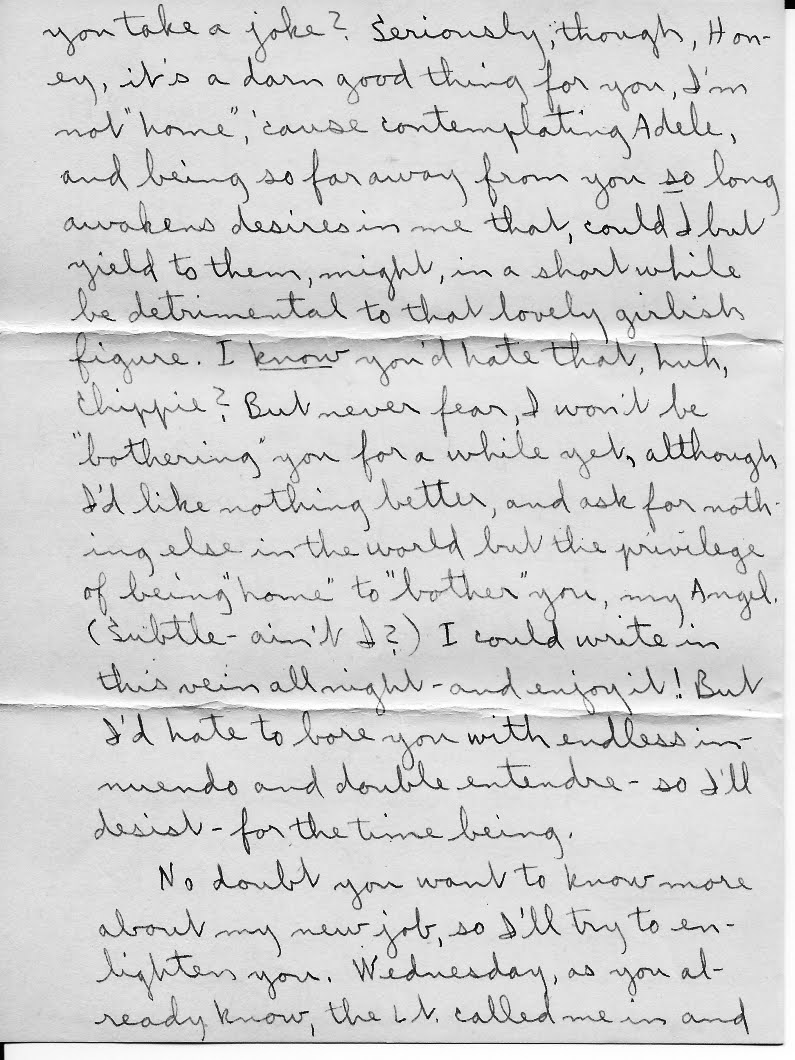 you take a joke? Seriously, though, Hon-
ey, it's a darn good thing for you, I'm
not "home", 'cause contemplating Adele,
and being so far away from you so long
awakens desires in me that, could I but
yield to them, might, in a short while
be detrimental to that lovely girlish
figure. I know you'd hate that, huh,
Chippie? But never fear, I won't be
"bothering" you for a while yet, although
I'd like nothing better, and ask for noth-
ing else in the world but the privilege
of being "home" to "bother" you, my Angel.
(Subtle - ain't I?) I could write in
this vein all night - and enjoy it! But
I'd hate to bore you with endless in-
nuendo and double entendre - so I'll
desist - for the time being.
No doubt you want to know more
about my new job, so I'll try to en-
lighten you. Wednesday, as you al-
ready know, the Lt. called me in and